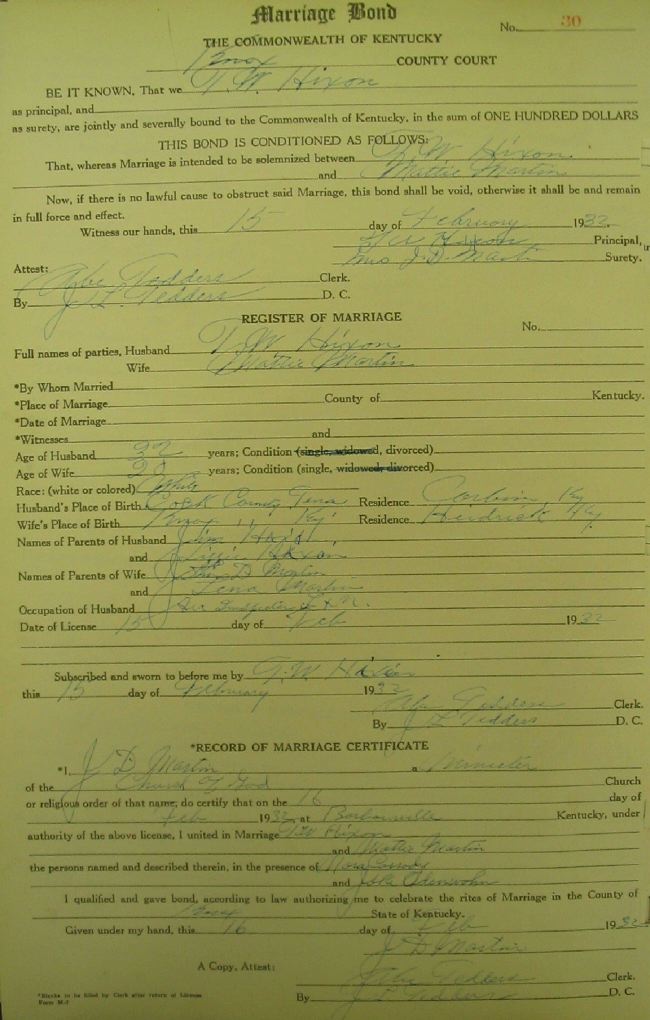 Marriage Bond
No. 30
THE COMMONWEALTH OF KENTUCKY
Knox COUNTY COURT
BE IT KNOWN, That we T. W. Hixon
as principal, and
as surety, are jointly and severally bound to the Commonwealth of Kentucky, in the sum of ONE HUNDRED DOLLARS
THIS BOND IS CONDITIONED AS FOLLOWS:
That, whereas Marriage is intended to be solemnized between T. W. Hixon
and Mattie Martin
Now, if there is no lawful cause to obstruct said Marriage, this bond shall be void, otherwise it shall be and remain
in full force and effect.
Witness our hands, this 15 day of February 1932.
T. W. Hixon Principal,
J. D. Martin Surety.
Attest: Abe Tedders Clerk.
By J L Tedders D. C.
REGISTER OF MARRIAGE
No.
Full names of parties, Husband T. W. Hixon
Wife Mattie Martin
*By Whom Married
*Place of Marriage County of Kentucky.
*Date of Marriage
*Witnesses and
Age of Husband 32 years; Condition (single, widowed, divorced)
Age of Wife 20 years; Condition (single, widowed, divorced)
Race: (white or colored) White
Husband's Place of Birth Cock County Tena Residence Corbin Ky
Wife's Place of Birth Knox " Ky Residence Heidrick Ky
Names of Parents of Husband Jim Hixon
and Lizzie Hixon
Names of Parents of Wife D Martin
and Lena Martin
Occupation of Husband
Date of License 15 day of Feb 1932
Subscribed and sworn to before me by T. W. Hixon
this 15 day of February 1932
Abe Tedders Clerk.
By J L Tedders D. C.
*RECORD OF MARRIAGE CERTIFICATE
*I, J D Martin a Minister
of the Church of God Church
or religious order of that name, do certify that on the 16 day of
Feb 1932, at Barbourville Kentucky, under
authority of the above license, I united in Marriage T. W. Hixon
and Mattie Martin
the persons named and described therein, in the presence of
and
I qualified and gave bond, according to law authorizing me to celebrate the rites of Marriage in the County of
Knox State of Kentucky.
Given under my hand, this 16 day of Feb 1932
J D Martin
A Copy, Attest: Abe Tedders Clerk.
By J L Tedders D. C.
*Blanks to be filled by Clerk after return of License
Form M-2